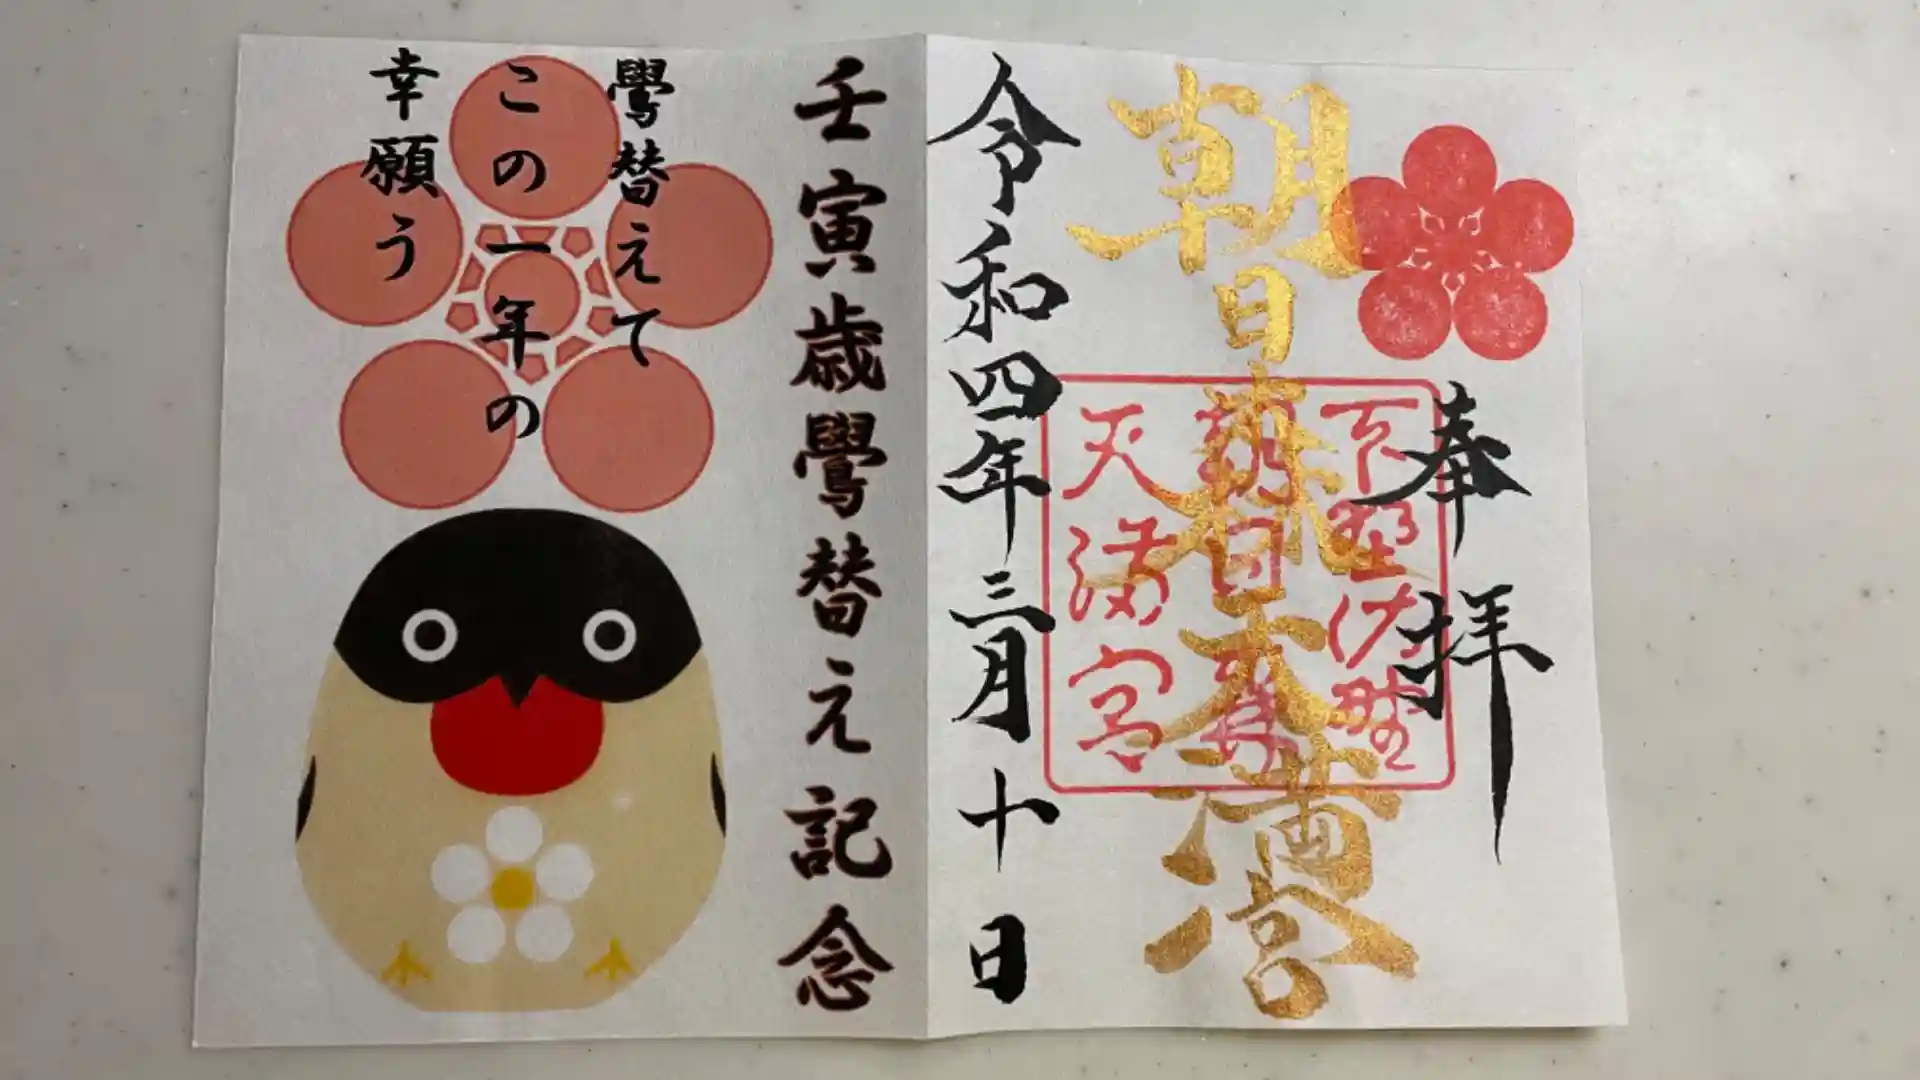 奉拝
朝日森天満宮
下野佐野
朝日森
天満宮
令和四年三月十日
壬寅歳鷽替え記念
鷽替えて
この一年の
幸願う